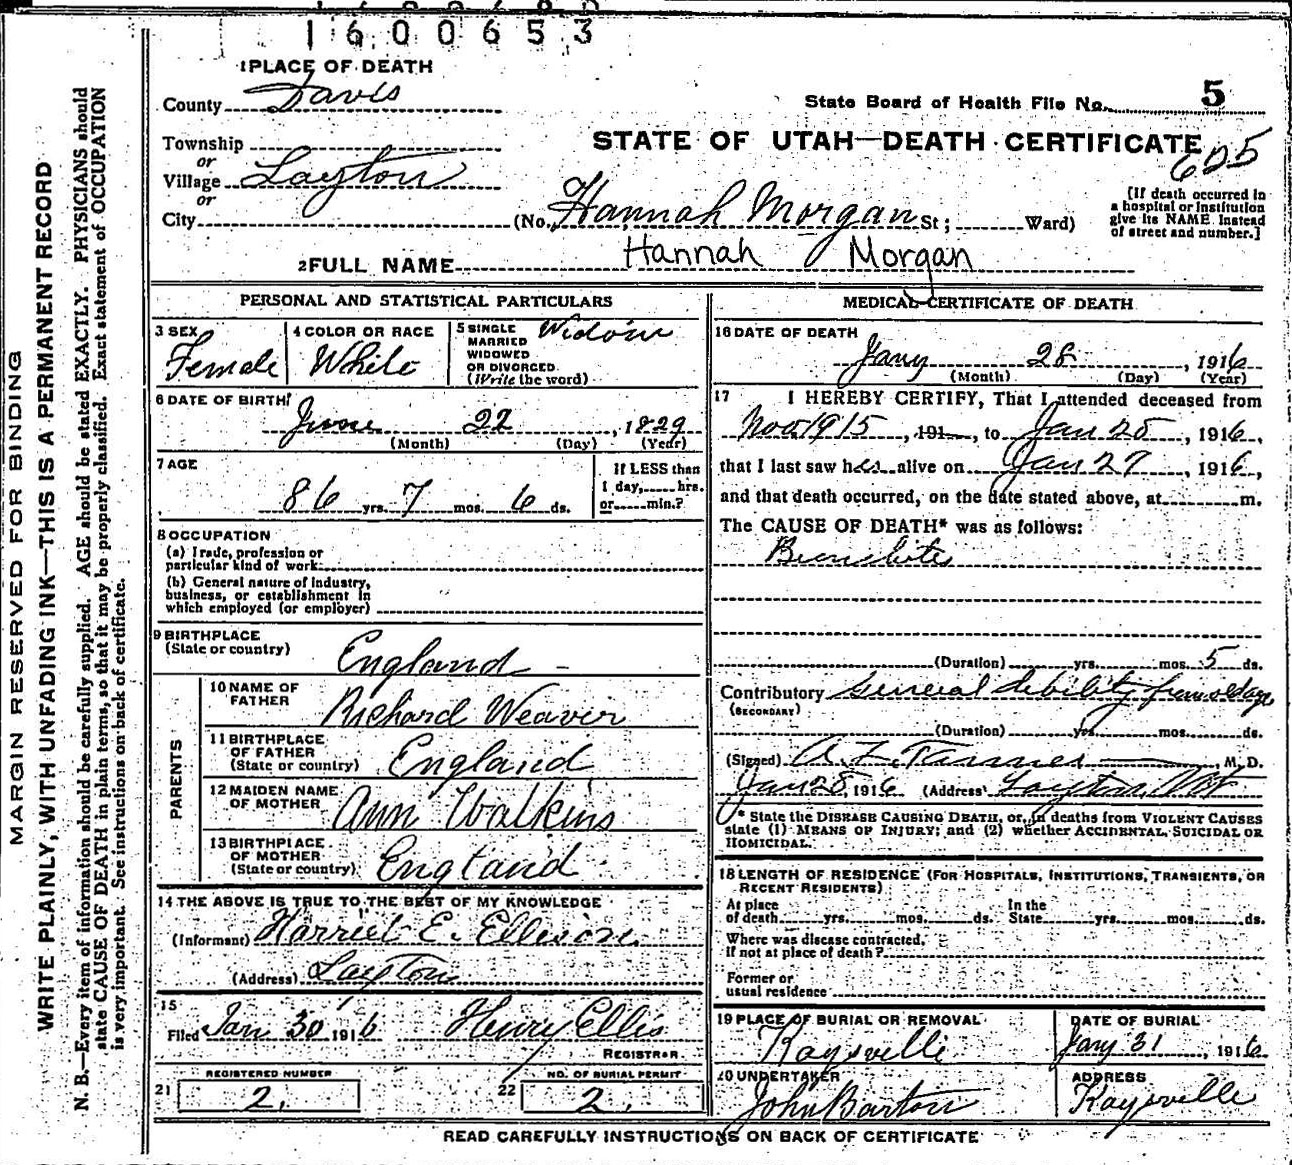 1600653
1 PLACE OF DEATH
County Davis
State Board of Health File No. 5
Township
or
STATE OF UTAH—DEATH CERTIFICATE
605
Village Layton
or
City (No. Hannah Morgan St; Ward)
[If death occurred in
a hospital or institution
give its NAME instead
of street and number.]
2 FULL NAME Hannah Morgan
PERSONAL AND STATISTICAL PARTICULARS
3 SEX
Female
4 COLOR OR RACE
White
5 SINGLE
MARRIED
WIDOWED
OR DIVORCED
(Write the word)
Widow
6 DATE OF BIRTH
June 22, 1829
(Month) (Day) (Year)
7 AGE
86 yrs. 7 mos. 6 ds.
If LESS than
1 day, hrs.
or min.?
8 OCCUPATION
(a) Trade, profession or
particular kind of work
(b) General nature of industry,
business, or establishment in
which employed (or employer)
9 BIRTHPLACE
(State or country) England
PARENTS
10 NAME OF
FATHER Richard Weaver
11 BIRTHPLACE
OF FATHER
(State or country) England
12 MAIDEN NAME
OF MOTHER Ann Watkins
13 BIRTHPLACE
OF MOTHER
(State or country) England
14 THE ABOVE IS TRUE TO THE BEST OF MY KNOWLEDGE
(Informant) Harriet E. Ellison
(Address) Layton
15
Filed Jan 30 1916 Henry Ellis
REGISTRAR
REGISTERED NUMBER
21 2.
NO. OF BURIAL PERMIT
22 2.
MEDICAL CERTIFICATE OF DEATH
16 DATE OF DEATH
Jany 28, 1916
(Month) (Day) (Year)
17 I HEREBY CERTIFY, That I attended deceased from
Nov 1915, 191 , to Jan 28, 1916,
that I last saw her alive on Jan 27, 1916,
and that death occurred, on the date stated above, at m.
The CAUSE OF DEATH* was as follows:
Bronchitis
(Duration) yrs. mos. 5 ds.
Contributory General debility from old age
(SECONDARY)
(Duration) yrs. mos. ds.
(Signed) A. L. , M. D.
Jan 28, 1916 (Address) Layton Ut
* State the DISEASE CAUSING DEATH, or, in deaths from VIOLENT CAUSES
state (1) MEANS OF INJURY; and (2) whether ACCIDENTAL, SUICIDAL OR
HOMICIDAL.
18 LENGTH OF RESIDENCE (FOR HOSPITALS, INSTITUTIONS, TRANSIENTS, OR
RECENT RESIDENTS)
At place
of death yrs. mos. ds.
In the
State yrs. mos. ds.
Where was disease contracted,
If not at place of death?
Former or
usual residence
19 PLACE OF BURIAL OR REMOVAL
Kaysville
DATE OF BURIAL
Jany 31, 1916
20 UNDERTAKER
John Barton
ADDRESS
Kaysville
READ CAREFULLY INSTRUCTIONS ON BACK OF CERTIFICATE
MARGIN RESERVED FOR BINDING
WRITE PLAINLY, WITH UNFADING INK—THIS IS A PERMANENT RECORD
N. B.—Every item of information should be carefully supplied. AGE should be stated EXACTLY. PHYSICIANS should
state CAUSE OF DEATH in plain terms, so that it may be properly classified. Exact statement of OCCUPATION
is very important. See instructions on back of certificate.